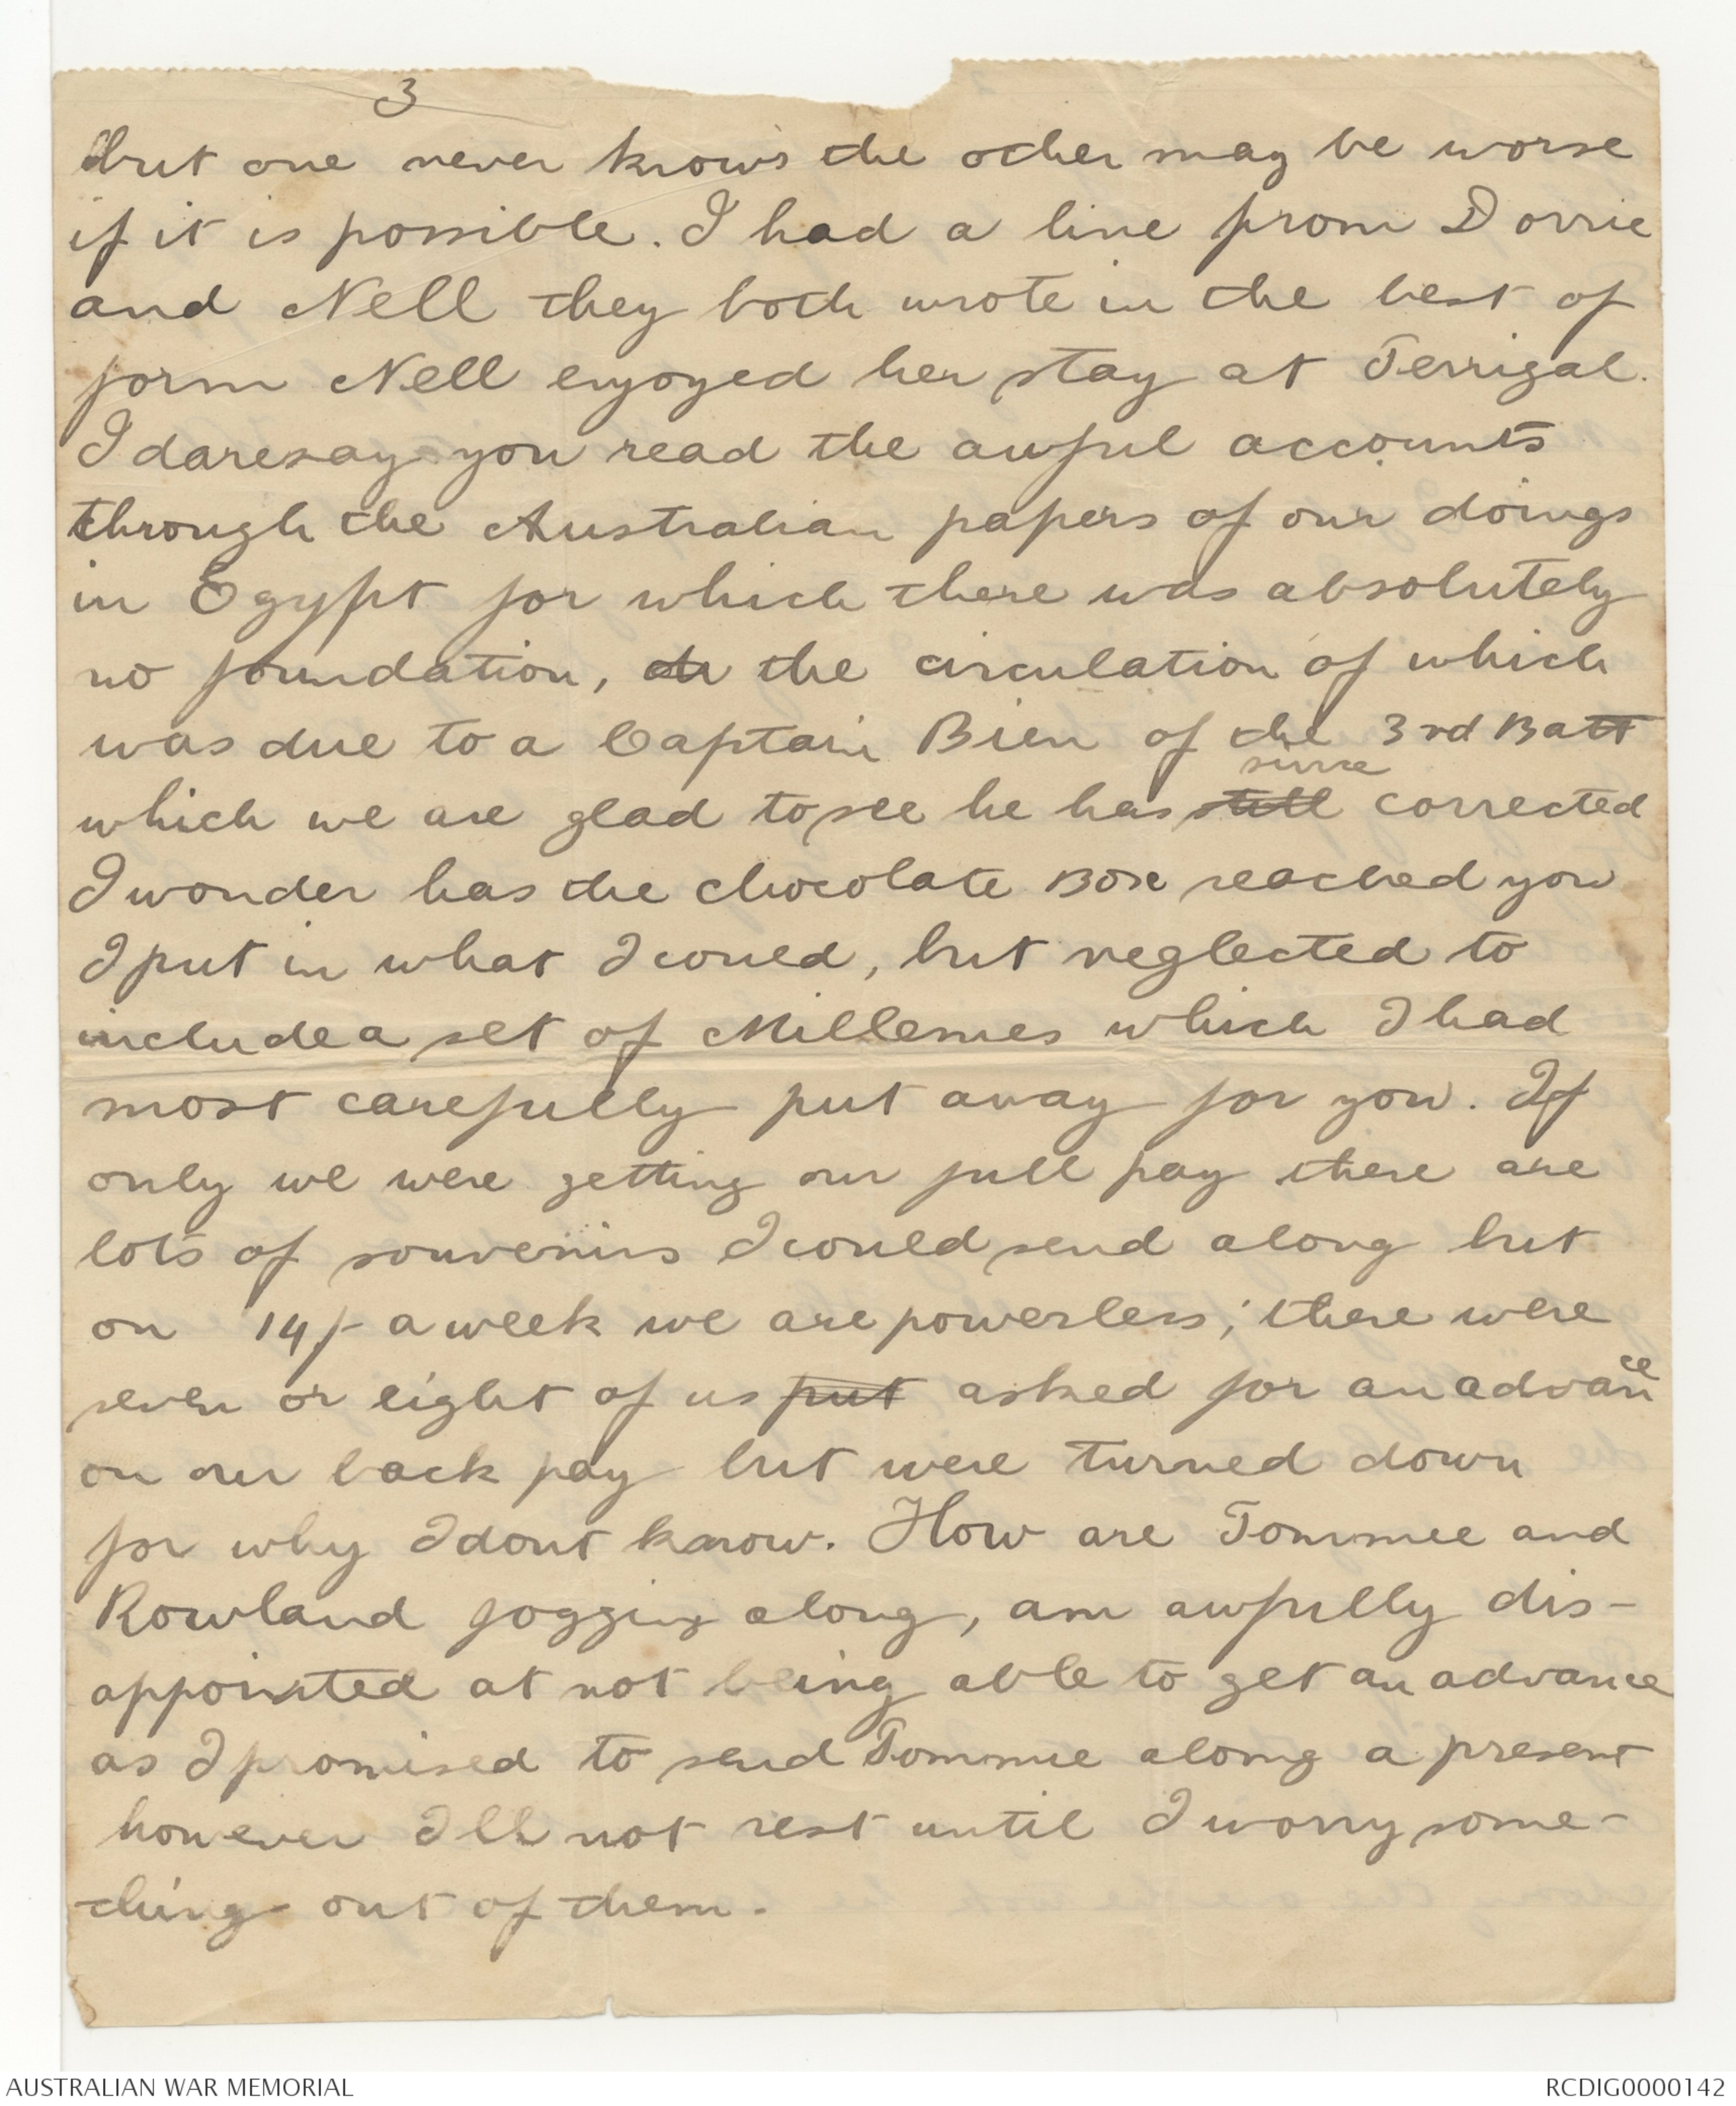 3
but one never knows the other may be worse
if it is possible. I had a line from Dorrie
and Nell they both wrote in the best of
form Nell enjoyed her stay at Terrigal.
I daresay you read the awful accounts
through the Australian papers of our doings
in Egypt for which there was absolutely
no foundation, the circulation of which
was due to a Captain Bien of the 3rd Batt
since
which we are glad to see he has still corrected
I wonder has the chocolate Box reached you
I put in what I could, but neglected to
include a set of Millemes which I had
most carefully put away for you. If
only we were getting our full pay there are
lots of souvenirs I could send along but
on 14/- a week we are powerless; there were
seven or eight of us put asked for an advance
on our back pay but were turned down
for why I dont know. How are Tommee and
Rowland jogging along, am awfully dis-
appointed at not being able to get an advance
as I promised to send Tommie along a present
however Ill not rest until I worry some-
thing out of them.
AUSTRALIAN WAR MEMORIAL
RCDIG0000142